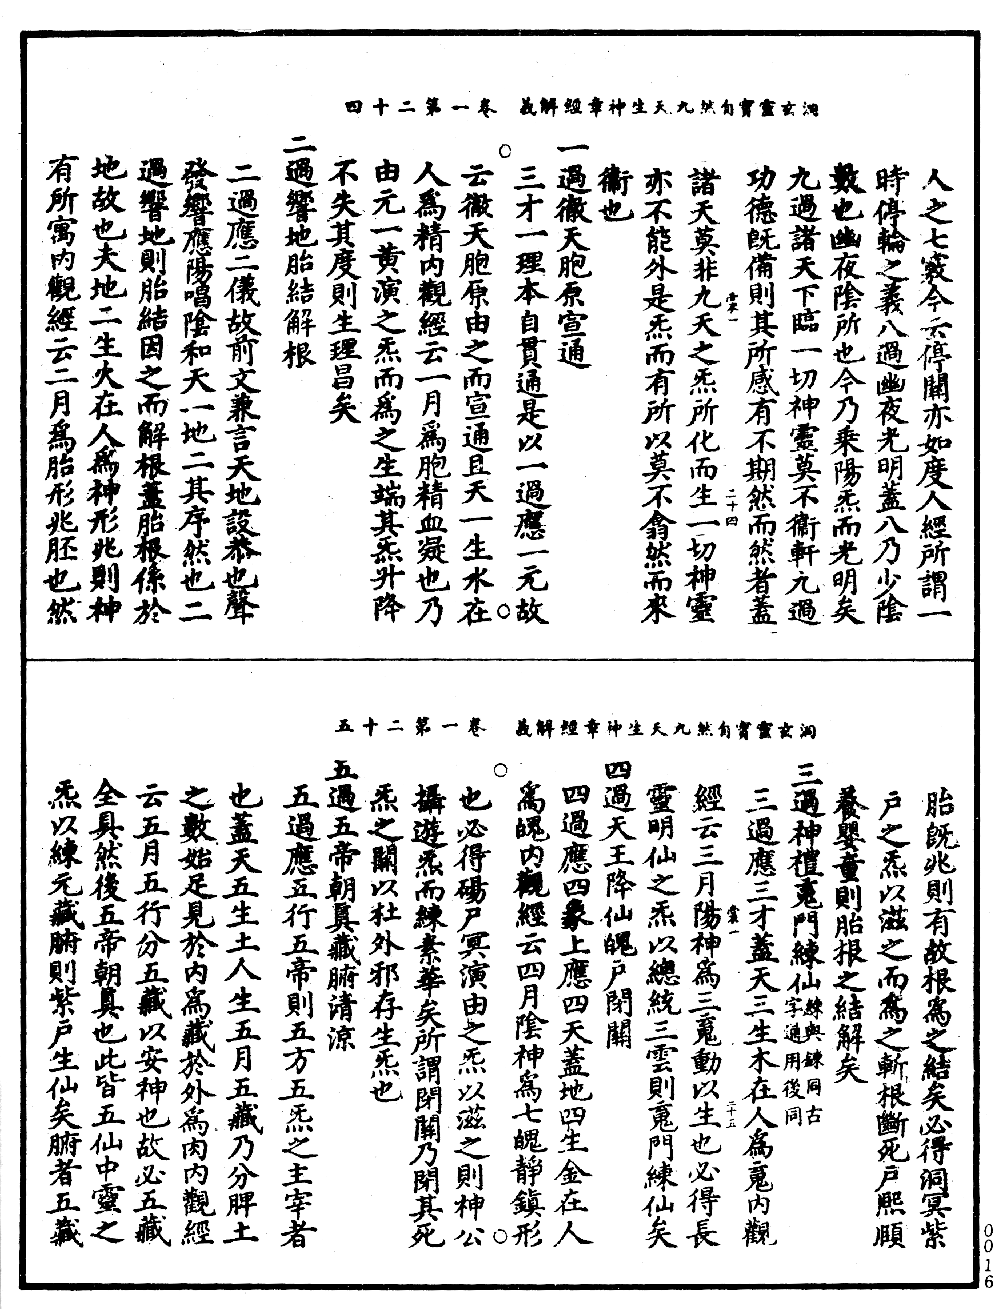 洞玄靈寶自然九天生神章經解義　卷一第二十四
人之七竅今云停關亦如度人經所謂一
時停輪之義八過幽夜光明蓋八乃少陰
數也幽夜陰所也今乃乘陽炁而光明矣
九過諸天下臨一切神靈莫不衞軒九過
功德旣備則其所感有不期然而然者蓋
裳一　二十四
諸天莫非九天之炁所化而生一切神靈
亦不能外是炁而有所以莫不翕然而來
衞也
一過徹天胞原宣通
三才一理本自貫通是以一過應一元故
云徹天胞原由之而宣通且天一生水在
人爲精內觀經云一月爲胞精血凝也乃
由元一黃演之炁而爲之生端其炁升降
不失其度則生理昌矣
二過響地胎結解根
二過應二儀故前文兼言天地設恭也聲
發響應陽唱陰和天一地二其序然也二
過響地則胎結因之而解根蓋胎根係於
地故也夫地二生火在人爲神形兆則神
有所寓內觀經云二月爲胎形兆胚也然
洞玄靈寶自然九天生神章經解義　卷一第二十五
胎旣兆則有故根爲之結矣必得洞冥紫
戶之炁以滋之而爲之斬根斷死戶熙頤
養嬰童則胎根之結解矣
三過神禮䰟門練仙練與鍊同古字通用後同
三過應三才蓋天三生木在人爲䰟內觀
裳一　二十五
經云三月陽神爲三䰟動以生也必得長
靈明仙之炁以總統三雲則䰟門練仙矣
四過天王降仙魄戶閉關
四過應四象上應四天蓋地四生金在人
爲魄內觀經云四月陰神爲七魄靜鎮形
也必得碭尸冥演由之炁以滋之則神公
攝遊炁而練素華矣所謂閉關乃閉其死
炁之關以杜外邪存生炁也
五過五帝朝眞藏腑淸涼
五過應五行五帝則五方五炁之主宰者
也蓋天五生土人生五月五藏乃分脾土
之數始足見於內爲藏於外爲肉內觀經
云五月五行分五藏以安神也故必五藏
全具然後五帝朝眞也此皆五仙中靈之
炁以練元藏腑則紫戶生仙矣腑者五藏
0016